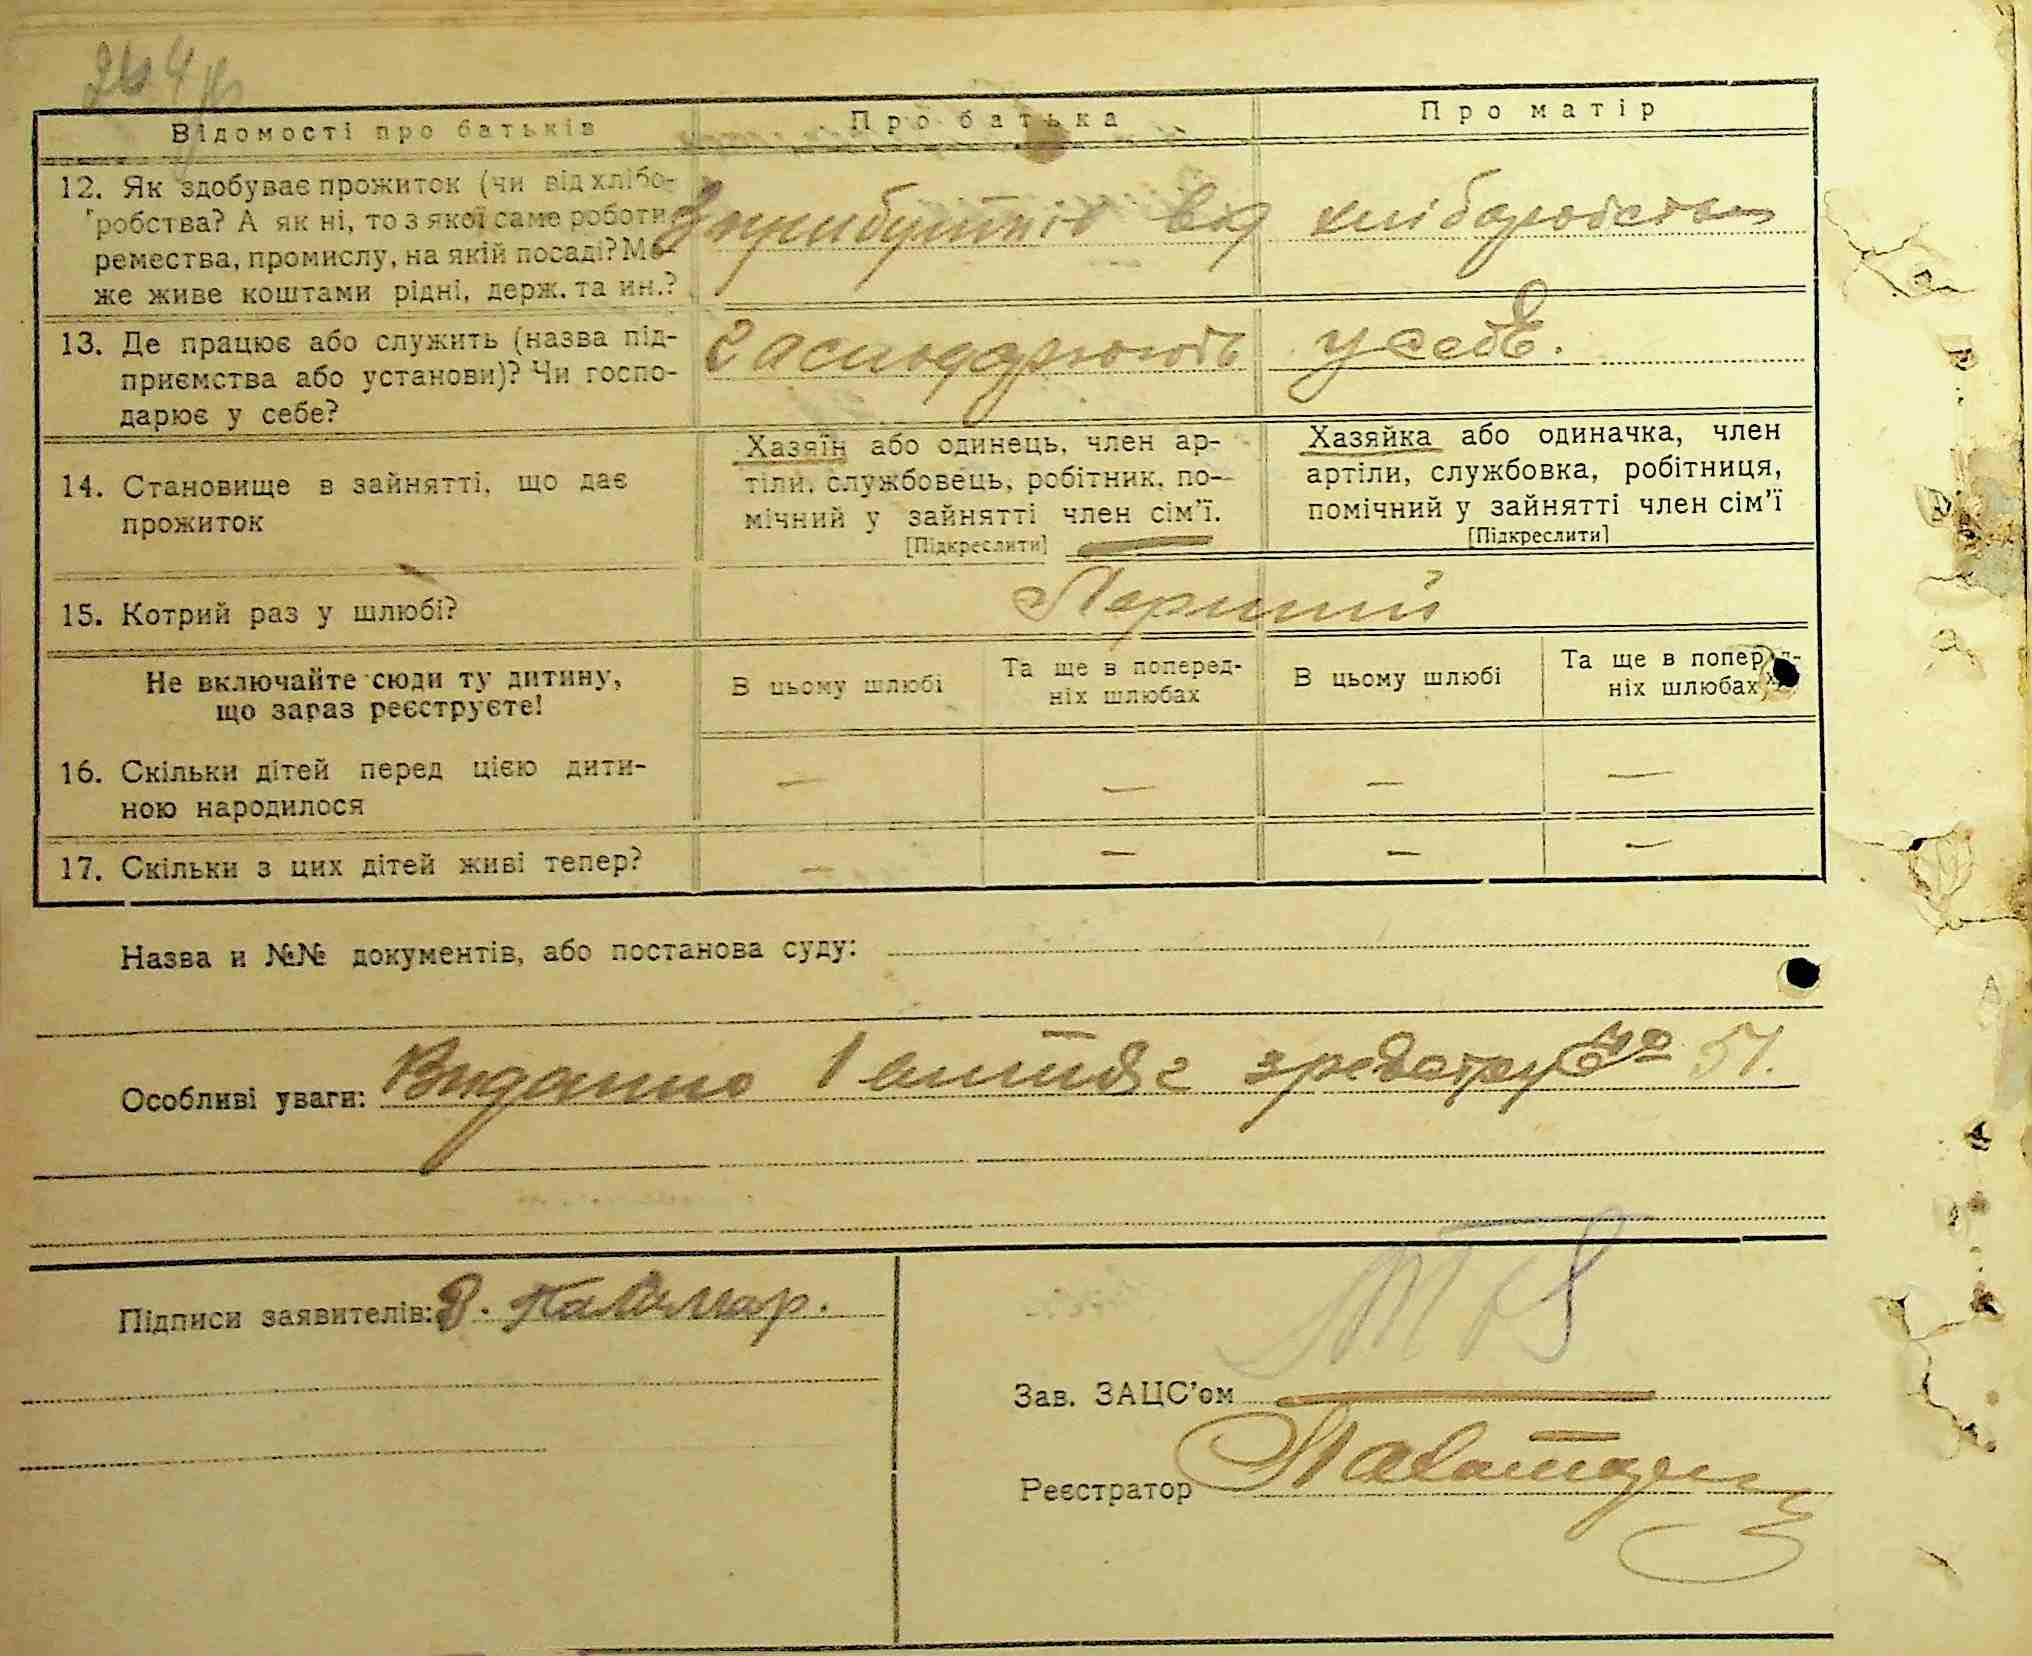 Відомості про батьків
Про батька
Про матір
12. Як здобуває прожиток (чи від хлібо-
робства? А як ні, то з якої саме роботи,
ремества, промислу, на якій посаді? Мо-
же живе коштами рідні, держ. та ин.?
З прибутків від хліборобства
13. Де працює або служить (назва під-
приємства або установи)? Чи госпо-
дарює у себе?
Господарюють у себе.
14. Становище в зайнятті, що дає
прожиток
Хазяїн або одинець, член ар-
тіли, службовець, робітник, по-
мічний у зайнятті член сім'ї.
[Підкреслити]
Хазяйка або одиначка, член
артіли, службовка, робітниця,
помічний у зайнятті член сім'ї
[Підкреслити]
15. Котрий раз у шлюбі?
Перший
Не включайте сюди ту дитину,
що зараз реєструєте!
В цьому шлюбі
Та ще в поперед-
ніх шлюбах
В цьому шлюбі
Та ще в поперед-
ніх шлюбах
16. Скільки дітей перед цією дити-
ною народилося
— — — —
17. Скільки з цих дітей живі тепер?
— — — —
Назва и №№ документів, або постанова суду:
Особливі уваги: Виданно 1 з реєстру № 51.
Підписи заявителів:
Зав. ЗАЦС'ом
Реєстратор